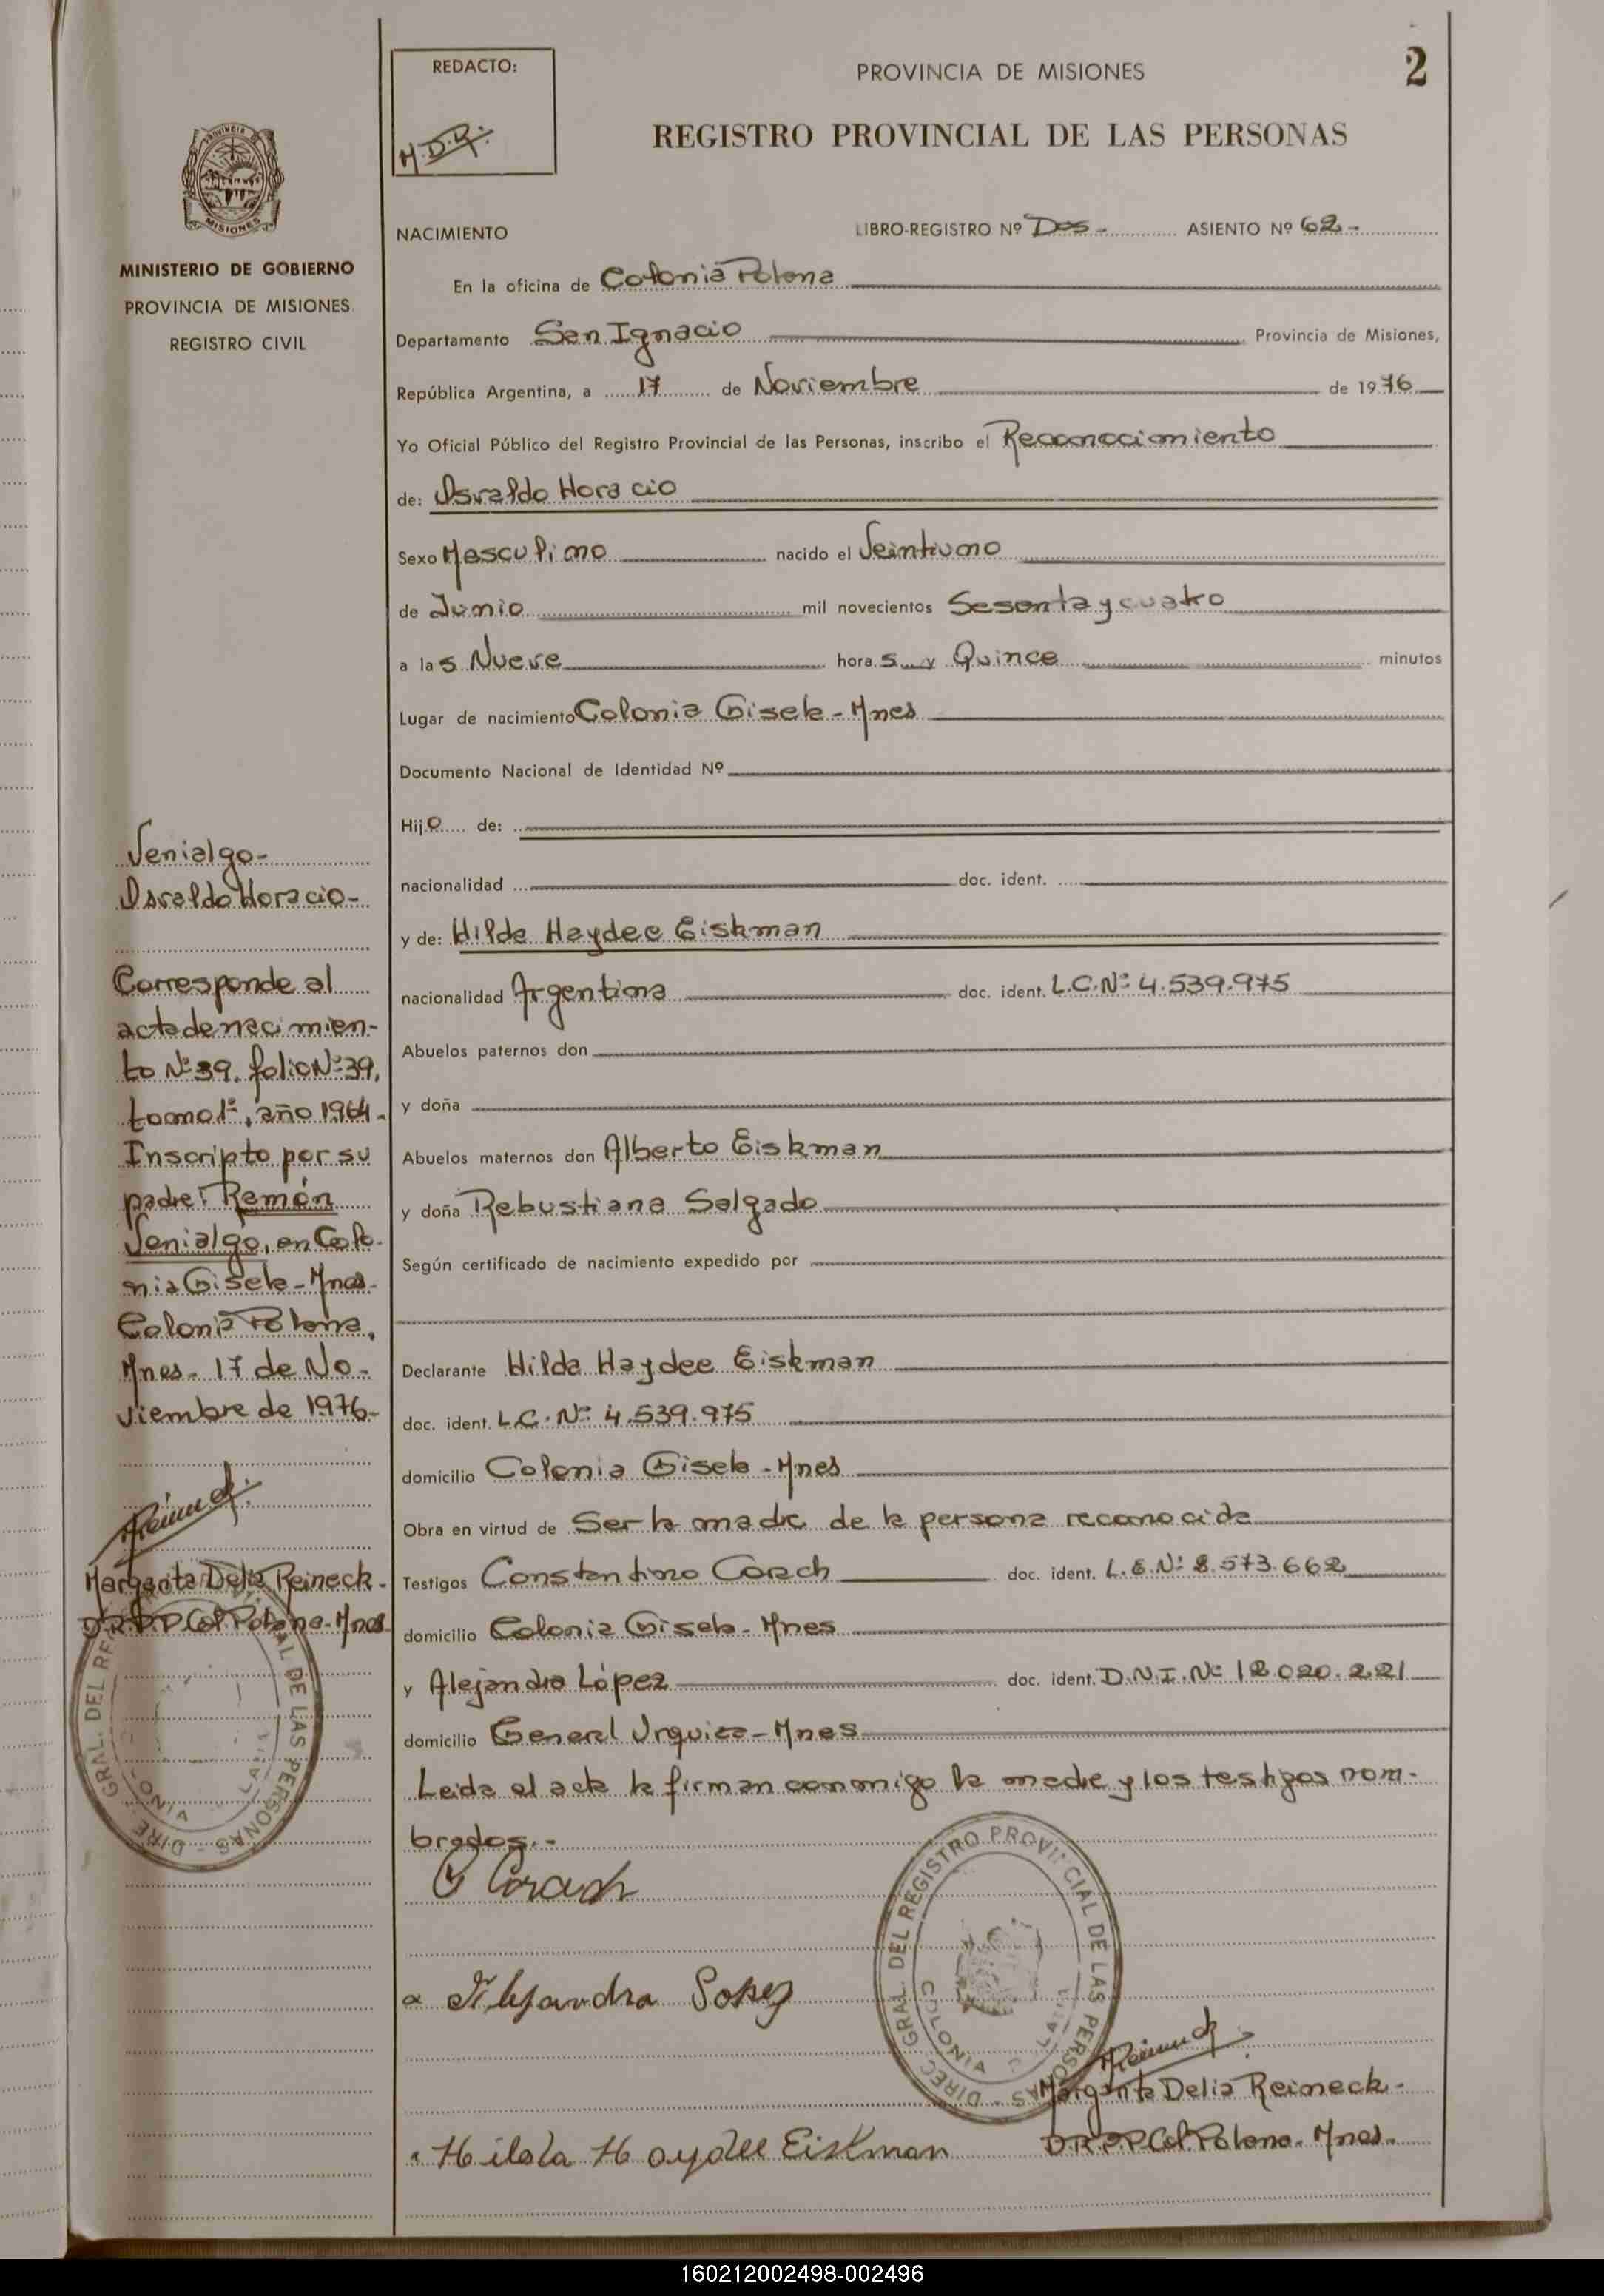 REDACTO:
M.D.R.
PROVINCIA DE MISIONES
2
REGISTRO PROVINCIAL DE LAS PERSONAS
PROVINCIA DE
MISIONES
MINISTERIO DE GOBIERNO
PROVINCIA DE MISIONES
REGISTRO CIVIL
NACIMIENTO LIBRO-REGISTRO Nº Dos- ASIENTO Nº 62-
En la oficina de Colonia Polana
Departamento San Ignacio Provincia de Misiones,
República Argentina, a 17 de Noviembre de 1976
Yo Oficial Público del Registro Provincial de las Personas, inscribo el Reconocimiento
de: Osvaldo Horacio
Sexo Masculino nacido el Veintiuno
de Junio mil novecientos Sesenta y cuatro
a las Nueve horas y Quince minutos
Lugar de nacimiento Colonia Gisela-Mnes
Documento Nacional de Identidad Nº
Hijo de:
nacionalidad doc. ident.
y de: Hilda Haydee Eiskman
nacionalidad Argentina doc. ident. L.C.Nº 4.539.975
Abuelos paternos don
y doña
Abuelos maternos don Alberto Eiskman
y doña Rebustiana Salgado
Según certificado de nacimiento expedido por
Declarante Hilda Haydee Eiskman
doc. ident. L.C.Nº 4.539.975
domicilio Colonia Gisela-Mnes
Obra en virtud de Ser la madre de la persona reconocida
Testigos Constantino Corach doc. ident. L.E.Nº 8.573.662
domicilio Colonia Gisela-Mnes
y Alejandro López doc. ident. D.N.I.Nº 12.020.221
domicilio General Urquiza-Mnes
Leida el acta la firman conmigo la madre y los testigos nom-
brados.-
C Corach
Alejandro Lopez
Hilda Haydee Eiskman
DIREC. GRAL. DEL REGISTRO PROVINCIAL DE LAS PERSONAS
COLONIA
Reineck
Margarita Delia Reineck-
D.R.P.P Col. Polana-Mnes.
Venialgo-
Osvaldo Horacio-
Corresponde al
acta de nacimien-
to Nº39. folio Nº39,
tomo 1º, año 1964-
Inscripto por su
padre: Ramón
Venialgo, en Colo-
nia Gisela-Mnes.
Colonia Polana,
Mnes- 17 de No-
viembre de 1976-
Reineck
Margarita Delia Reineck-
D.R.P.P Col. Polana-Mnes
DIREC. GRAL. DEL RE
AL DE LAS PERSONAS
COLONIA
160212002498-002496